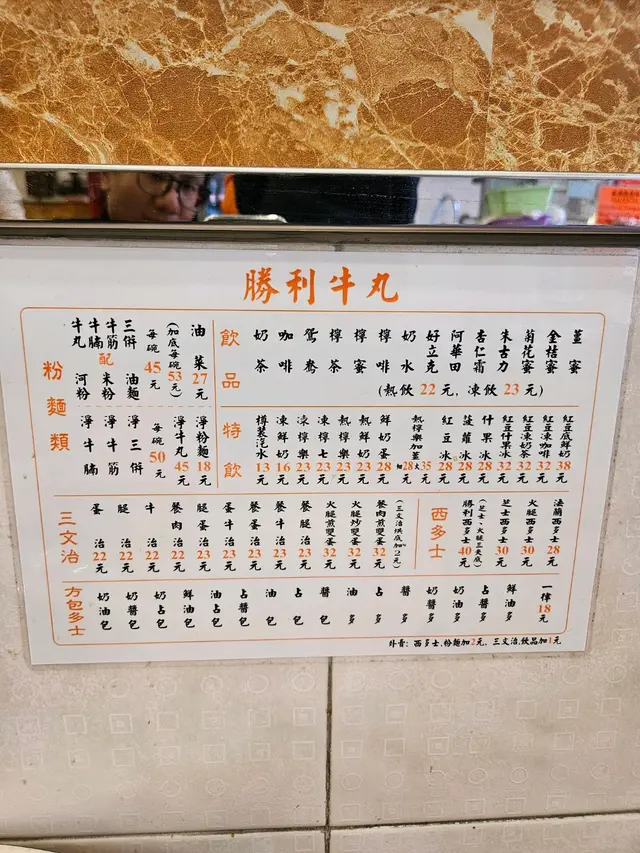 勝利牛丸
粉麵類
牛丸 牛腩 牛筋 三併
配
河粉 米粉 油麵
每碗45元
(加底每碗53元)
油菜27元
淨牛腩 淨牛筋 淨三併
每碗50元
淨牛丸45元
淨粉麵18元
飲品
奶茶
咖啡
鴛鴦
檸茶
檸啡
檸蜜
奶水
好立克
阿華田
杏仁霜
朱古力
菊花蜜
金桔蜜
薑蜜
(熱飲22元, 凍飲23元)
特飲
樽裝汽水13
凍鮮奶16
凍檸樂23
凍檸七23
熱檸樂23
熱鮮奶23
鮮奶蛋28
熱檸樂加薑 細28大35
紅豆冰28
菠蘿冰28
什果冰28
紅豆什果冰32
紅豆凍奶茶32
紅豆凍咖啡32
紅豆底鮮奶38
三文治
蛋治22元
腿治22元
牛治22元
餐肉治22元
餐蛋治23元
腿蛋治23元
蛋牛治23元
餐牛治23元
餐腿治23元
火腿煎雙蛋32元
火腿炒雙蛋32元
餐肉煎雙蛋32元
(三文治烘底加2元)
西多士
勝利西多士40元
(芝士、火腿三夾底)
芝士西多士30元
火腿西多士30元
法蘭西多士28元
方包多士
奶油包
奶醬包
奶占包
鮮油包
油占包
占醬包
油包
占包
醬包
油多
占多
醬多
奶醬多
奶油多
占醬多
鮮油多
一律18元
外賣：西多士、粉麵加2元, 三文治、飲品加1元